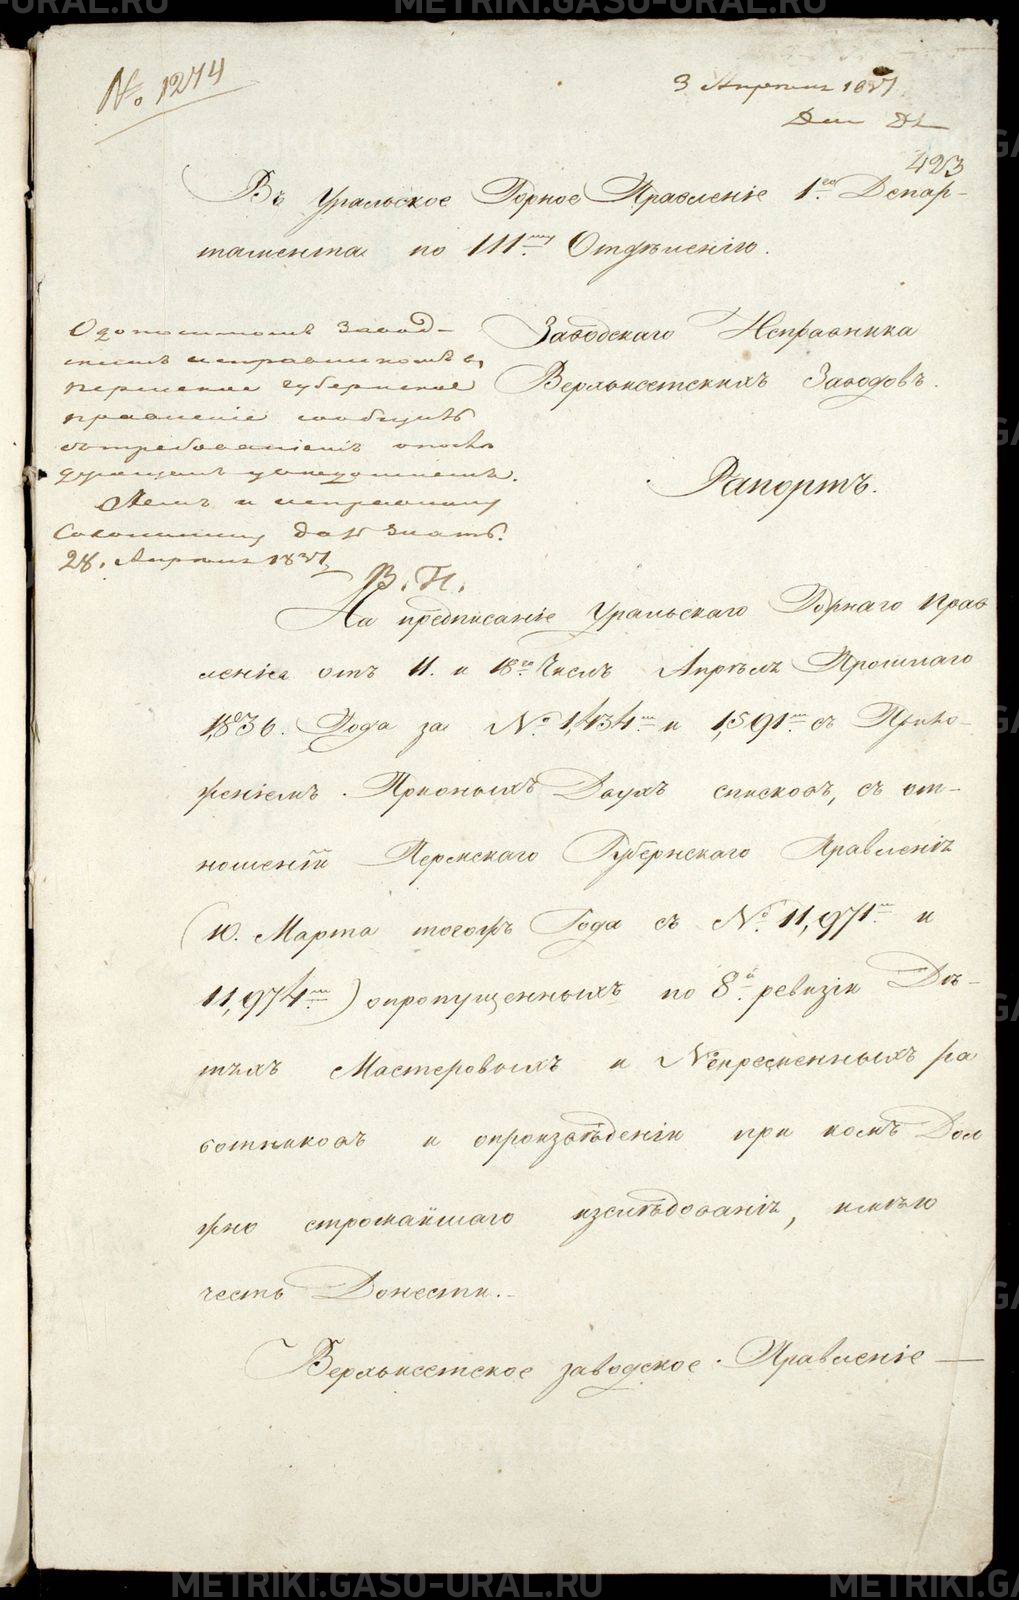 № 1274
3 Апреля 1837
423
Въ Уральское Горное Правленіе 1го Депар-
тамента по III му Отдѣленію.
Заводскаго Исправника
Верхъисетскихъ Заводовъ.
Рапортъ.
О донесенномъ завод-
скимъ исправникомъ въ
пермское губернское
правленіе сообщить
съ требованіемъ о послѣ
дующемъ увѣдомленія.
исправнику
дать знать.
28. Апреля 1837
В. Н.
На предписаніе Уральскаго Горнаго Прав
ленія отъ 11. и 18го Числъ Апрѣля Прошлаго
1,836. Года за № 1,434м и 1,591м съ Прило-
женіемъ Двухъ списковъ, съ от-
ношеній Пермскаго Губернскаго Правленія
(10. Марта тогожъ Года съ № 11,971м и
11,974м) опропущенныхъ по 8й ревизіи Дѣ-
тяхъ Мастеровыхъ и Непременныхъ ра
ботниковъ и опроизвѣденіи при комъ Дол
жно строжайшаго изслѣдованія, имѣю
честь Донести.-
Верхъисетское заводское Правленіе
METRIKI.GASO-URAL.RU